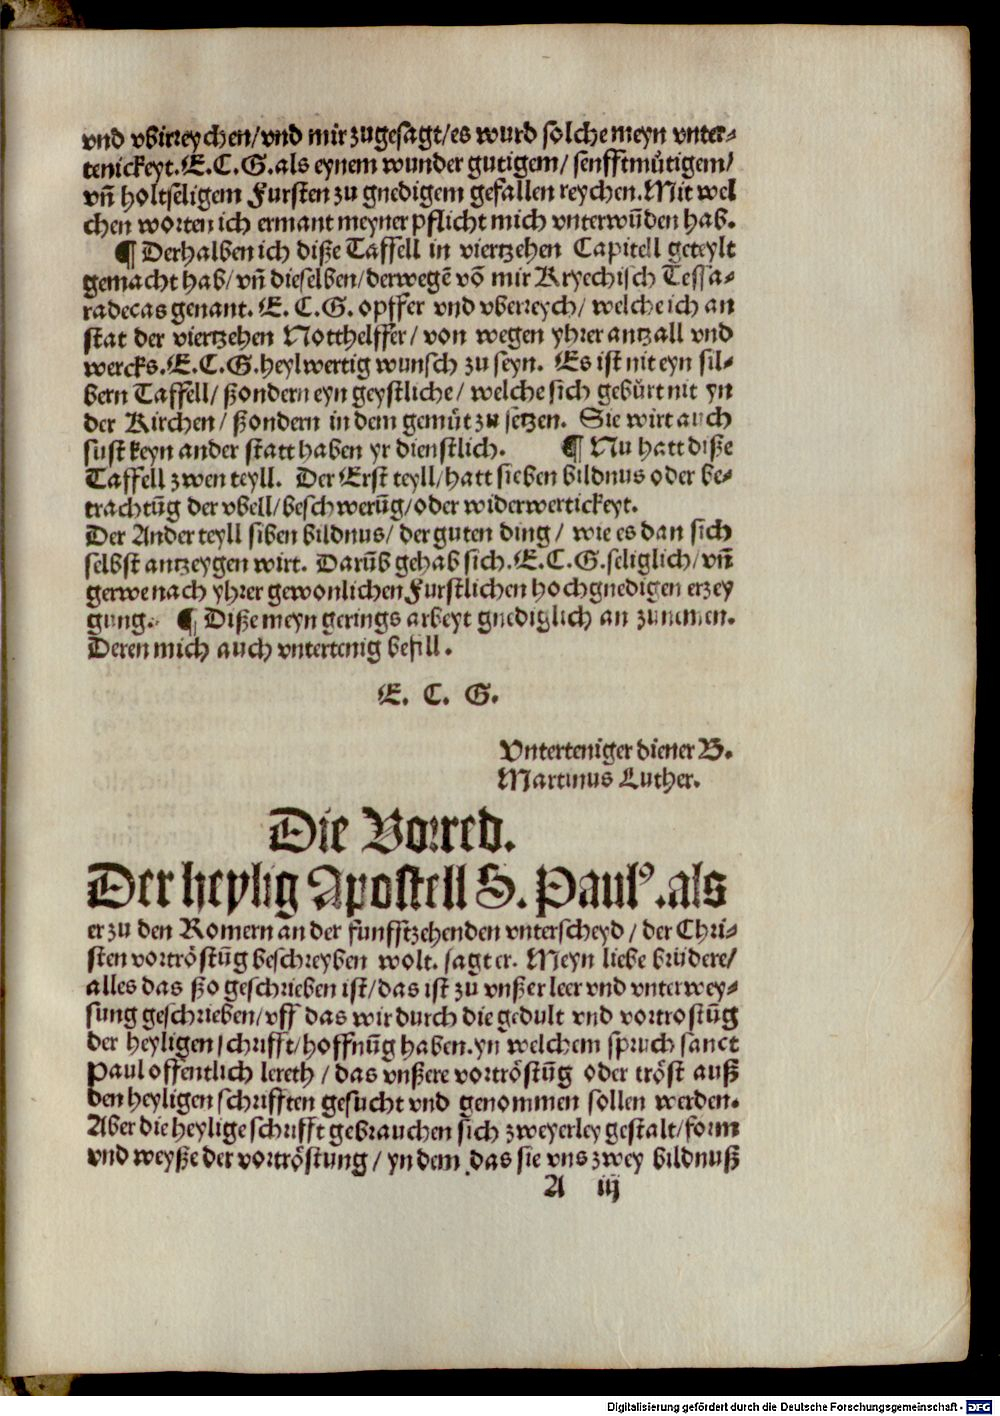 vnd vbirreychen/vnd mir zugesagt/es wurd solche meyn vnter-
tenickeyt.E.C.G.als eynem wunder gutigem/ senfftmůtigem/
vñ holtseligem Fursten zu gnedigem gefallen reychen.Mit wel
chen worten ich ermant meyner pflicht mich vnterwũden hab.
¶ Derhalben ich diße Taffell in viertzehen Capitell geteylt
gemacht hab/ vñ dieselben/derwegẽ võ mir Kryechisch Tessa-
radecas genant. E. C. G. opffer vnd vberreych/ welche ich an
stat der viertzehen Notthelffer/ von wegen yhrer antzall vnd
wercks.E.C.G.heylwertig wunsch zu seyn. Es ist nit eyn sil-
bern Taffell/ ßondern eyn geystliche/ welche sich gebůrt nit yn
der Kirchen/ ßondern in dem gemůt zu setzen. Sie wirt auch
sust keyn ander statt haben yr dienstlich. ¶ Nu hatt diße
Taffell zwen teyll. Der Erst teyll/hatt sieben bildnus oder be-
trachtũg der vbell/beschwerũg/oder widerwertickeyt.
Der Ander teyll siben bildnus/ der guten ding/ wie es dan sich
selbst antzeygen wirt. Darũb gehab sich.E.C.G.seliglich/vñ
gerwe nach yhrer gewonlichen Furstlichen hochgnedigen erzey
gung. ¶ Diße meyn gerings arbeyt gnediglich an zunemen.
Deren mich auch vntertenig befill.
E. C. G.
Vnterteniger diener B.
Martinus Luther.
Die Vorred.
Der heylig Apostell S. Paulꝰ.als
er zu den Romern an der funfftzehenden vnterscheyd/ der Chri-
sten vortröstũg beschreyben wolt. sagt er. Meyn liebe brüdere/
alles das ßo geschrieben ist/das ist zu vnßer leer vnd vnterwey-
sung geschrieben/vff das wir durch die gedult vnd vortrostũg
der heyligen schrifft/hoffnũg haben.yn welchem spruch sanct
Paul offentlich lereth/ das vnßere vortröstũg oder tröst auß
den heyligen schrifften gesucht vnd genommen sollen werden.
Aber die heylige schrifft gebrauchen sich zweyerley gestalt/form
vnd weyße der vortröstung/ yn dem das sie vns zwey bildnuß
A iij
Digitalisierung gefördert durch die Deutsche Forschungsgemeinschaft - DFG